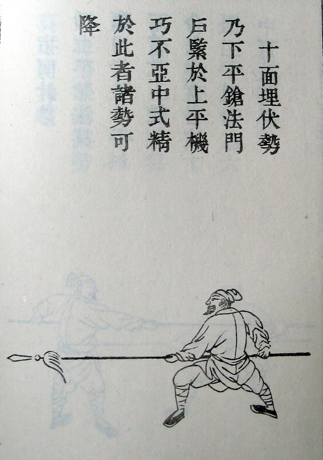 十面埋伏勢
乃下平鎗法門
戶緊於上平機
巧不亞中式精
於此者諸勢可
降